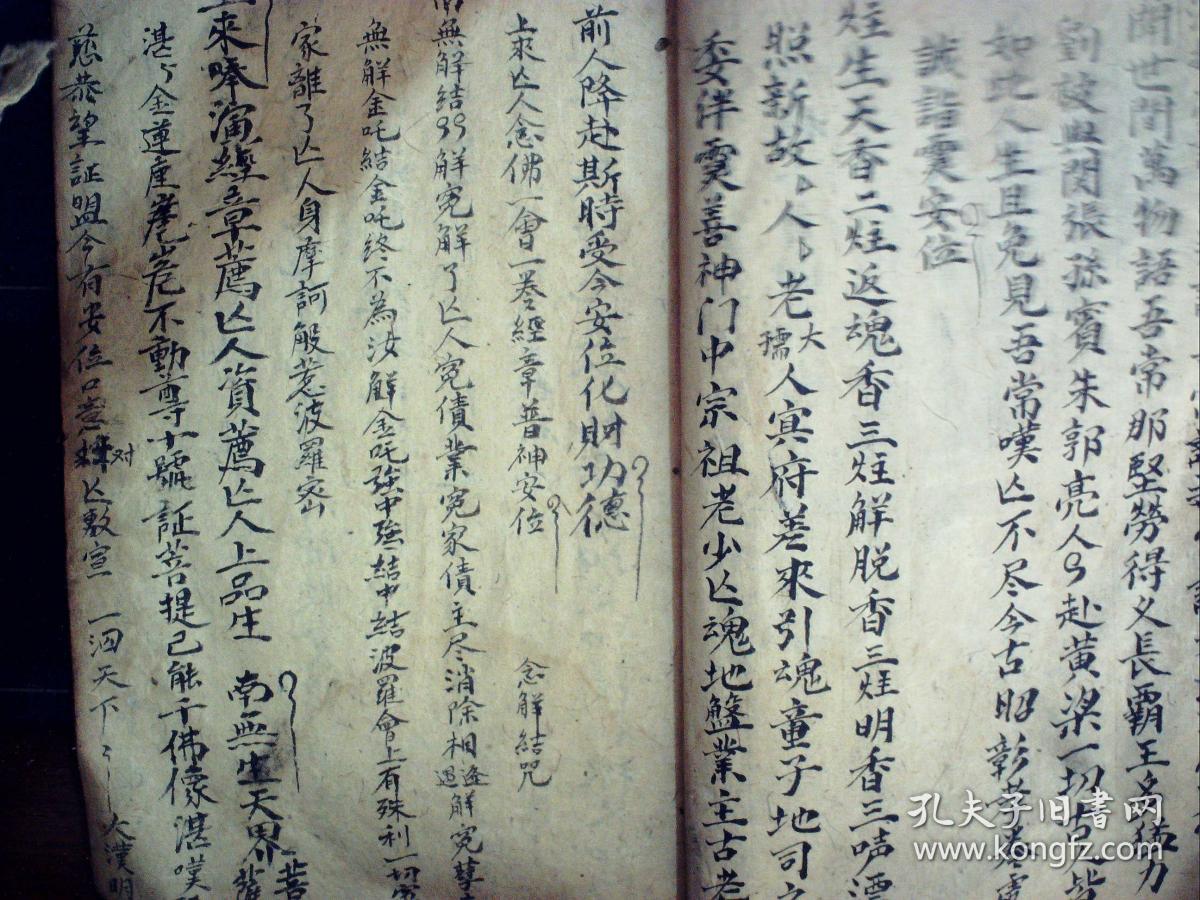 聞世間萬物語吾常那堅勞得义長霸王名
劉被與関張孫賓朱郭亮人〻赴黃梁一切
如此人生且免見吾常嘆亾不尽今古昭彰
誠詣靈安位
炷生天香二炷返魂香三炷解脱香三炷明香三
照新故〻人〻老大孺人冥府差來引魂童子地司
委伴靈善神门中宗祖老少亾魂地盤業主古老
前人降赴斯時受今安位化財功德
上來亾人念佛一會一卷經章普神安位 念解結咒
南無解結〻〻解冤解了亾人冤債業冤家債主尽消除相逢相遇解冤孽
無解金吒結金吒終不為汝解金吒強中強結中結波羅會上有殊利一切
家離了亾人身摩訶般惹波羅密
上來奉演經章薦亾人資薦亾人上品生 南無生天界菩薩
湛〻金蓮座巍〻不動尊十號証菩提已能千佛像湛嘆
慈恭望証盟今有安位口意對亾敷宣 一泗天下〻 大漢明
孔夫子旧书网
www.kongfz.com